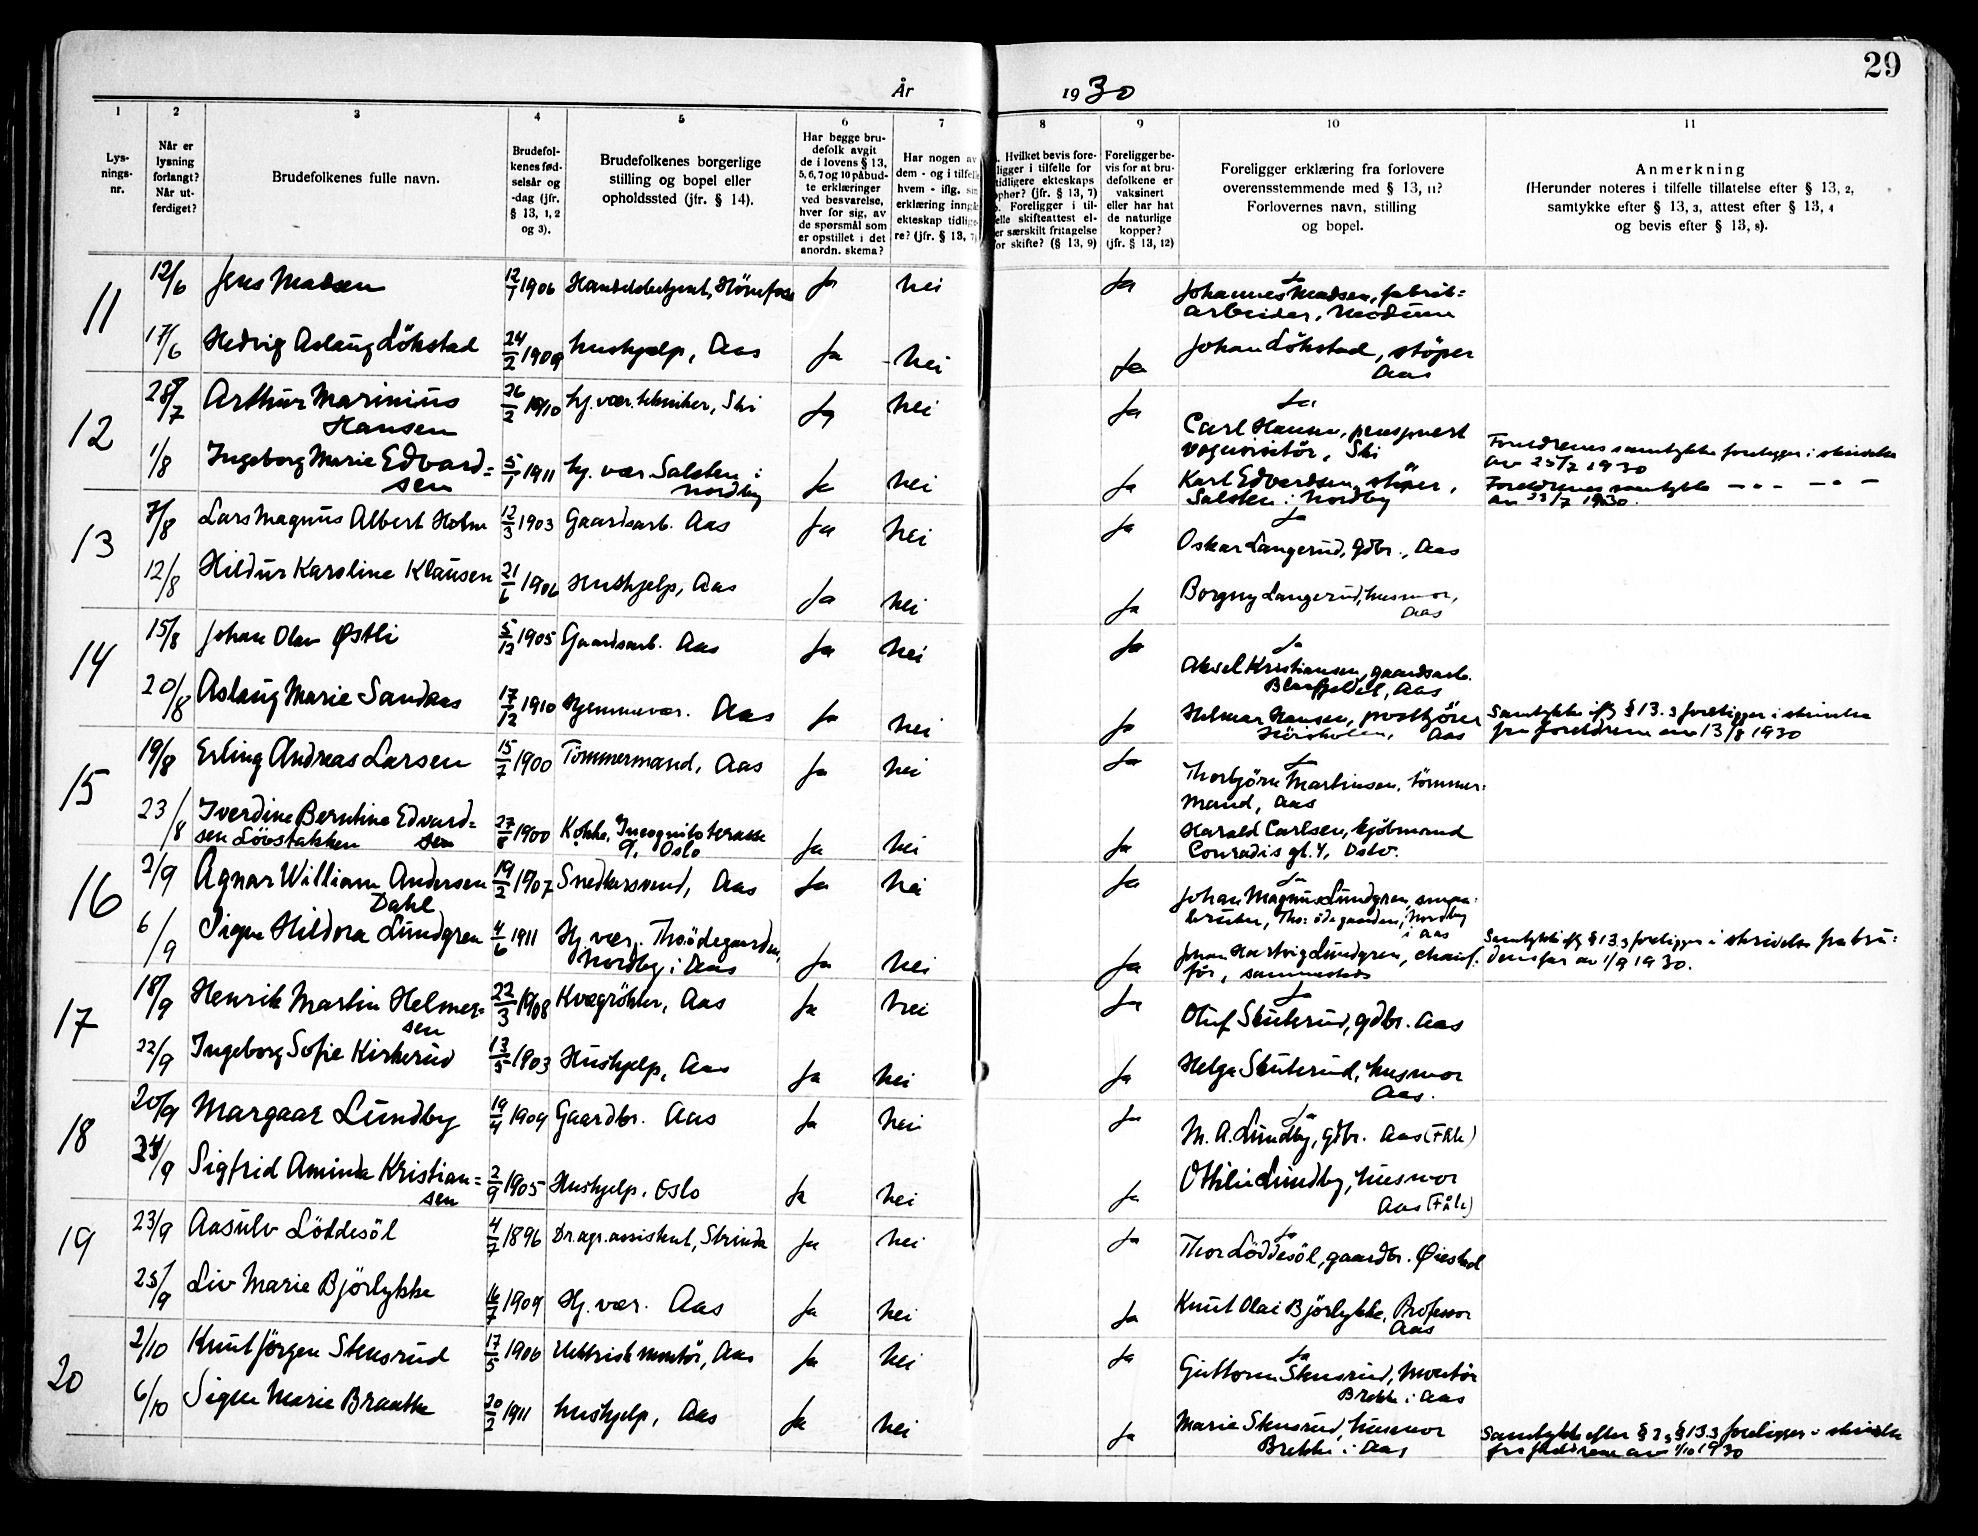 29
År 1930
1
2
3
4
5
6
7
8
9
10
11
Lys-
nings-
nr.
Når er
lysning
forlangt?
Når ut-
ferdiget?
Brudefolkenes fulle navn.
Brudefol-
kenes fød-
selsår og
-dag (jfr.
§ 13, 1, 2
og 3).
Brudefolkenes borgerlige
stilling og bopel eller
opholdssted (jfr. § 14).
Har begge bru-
defolk avgit
de i lovens § 13,
5, 6, 7 og 10 påbud-
te erklæringer
ved besvarelse,
hver for sig, av
de spørsmål som
er opstillet i det
anordn. skema?
Har nogen av
dem - og i tilfelle
hvem - iflg.
erklæring inngått
ekteskap tidlige-
re? (jfr. § 13, 7)
Hvilket bevis fore-
ligger i tilfelle for
tidligere ekteskaps
ophør? (jfr. § 13, 7)
Foreligger i til-
felle skifteattest el-
er særskilt fritagelse
for skifte? (§ 13, 9)
Foreligger be-
vis for at bru-
defolkene er
vaksinert
eller har hat
de naturlige
kopper?
(jfr. § 13, 12)
Foreligger erklæring fra forlovere
overensstemmende med § 13, 11?
Forlovernes navn, stilling
og bopel.
Anmerkning
(Herunder noteres i tilfelle tillatelse efter § 13, 2,
samtykke efter § 13, 3, attest efter § 13, 4
og bevis efter § 13, 8).
11 12/6 Jens Madsen 12/7 1906 Handelsbetjent, Hönefoss Ja nei Ja Ja
Johannes Madsen, fabrik=
arbeider, Modum
17/6 Hedvig Aslaug Lökstad 24/2 1909 hushjelp, Aas Ja nei Ja Johan Lökstad, stöper
Aas
12 28/7 Arthur Marinius
Hansen 26/2 1910 hj. vær. tekniker, Ski Ja nei Ja Ja
Carl Hansen, pensjonert
vognvisitör, Ski
Foreldrenes samtykke foreligger i skrivelse
av 25/7 1930
1/8 Ingeborg Marie Edvard=
sen 5/1 1911 hj. vær. Salsten i
Nordby Ja nei Ja Karl Edvardsen, stöper,
Salsten i Nordby
Foreldrenes samtykke — " — — " —
av 23/7 1930.
13 7/8 Lars Magnus Albert Holm 12/3 1903 Gaardsarb. Aas Ja nei Ja Ja
Oskar Langerud, gdbr., Aas
12/8 Hildur Karoline Klausen 21/6 1906 Hushjelp, Aas Ja nei Ja Borgny Langerud, husmor,
Aas
14 15/8 Johan Olav Østli 5/12 1905 Gaardsarb. Aas Ja nei Ja Ja
Aksel Kristiansen, gaardsarb.
Aas
20/8 Aslaug Marie Sandaas 17/12 1910 Hjemmevær. Aas Ja nei Ja Helmer Hansen, postkjörer
Aas
Samtykke iflg § 13.3 foreligger i skrivelse
fra foreldrene av 13/8 1930
15 19/8 Erling Andreas Larsen 15/7 1900 Tömmermand, Aas Ja nei Ja Ja
Thorbjörn Martinsen, tömmer-
mand, Aas
23/8 Iverdine Berntine Edvard=
sen Lövstakken 27/8 1900 Kokke, Incognito terasse
9, Oslo Ja nei Ja Harald Carlsen, kjöbmand
Conradis gt. 4, Oslo.
16 2/9 Agnar William Andersen
Dahl 19/2 1907 Snedkersvend, Aas Ja nei Ja Ja
Johan Magnus Lundgren,
Nordby
i Aas
6/9 Signe Hildora Lundgren 4/6 1911 Hj. vær. Thoödegaarden,
Nordby i Aas Ja nei Ja Johan Hartvig Lundgren, chauf-
för, sammesteds
Samtykke iflg § 13.3 foreligger i skrivelse fra bru-
dens far av 1/9 1930.
17 18/9 Henrik Martin Helmer-
sen 22/3 1908 Kvægrökter, Aas Ja nei Ja Ja
Oluf Skuterud, gdbr. Aas
22/9 Ingeborg Sofie Kirkerud 13/5 1903 Hushjelp, Aas Ja nei Ja Helga Skuterud, husmor
Aas.
18 20/9 Margaar Lundby 19/4 1909 Gaardbr. Aas Ja nei Ja Ja
M. A. Lundby, gdbr. Aas (Fålé)
24/9 Sigfrid Aminda Kristian=
sen 2/9 1905 Hushjelp, Oslo Ja nei Ja Othilie Lundby, husmor
Aas (Fålé)
19 23/9 Aasulv Löddesöl 4/7 1896 Dr. agr. assistent, Strinda Ja nei Ja Ja
Thor Löddesöl, gaardbr. Øiestad
25/9 Liv Marie Björlykke 16/7 1909 Hj. vær. Aas Ja nei Ja Knut Olai Björlykke, Professor
Aas
20 2/10 Knut Jörgen Stensrud 17/5 1906 Elektrisk montör, Aas Ja nei Ja Ja
Guttorm Stensrud, Montör
Brekke i Aas
6/10 Signe Marie Braathe 20/2 1911 hushjelp, Aas Ja nei Ja Marie Stensrud, husmor
Brekke i Aas
Samtykke efter § 13.3 foreligger i skrivelse
fra foreldrene av 1/10 1930